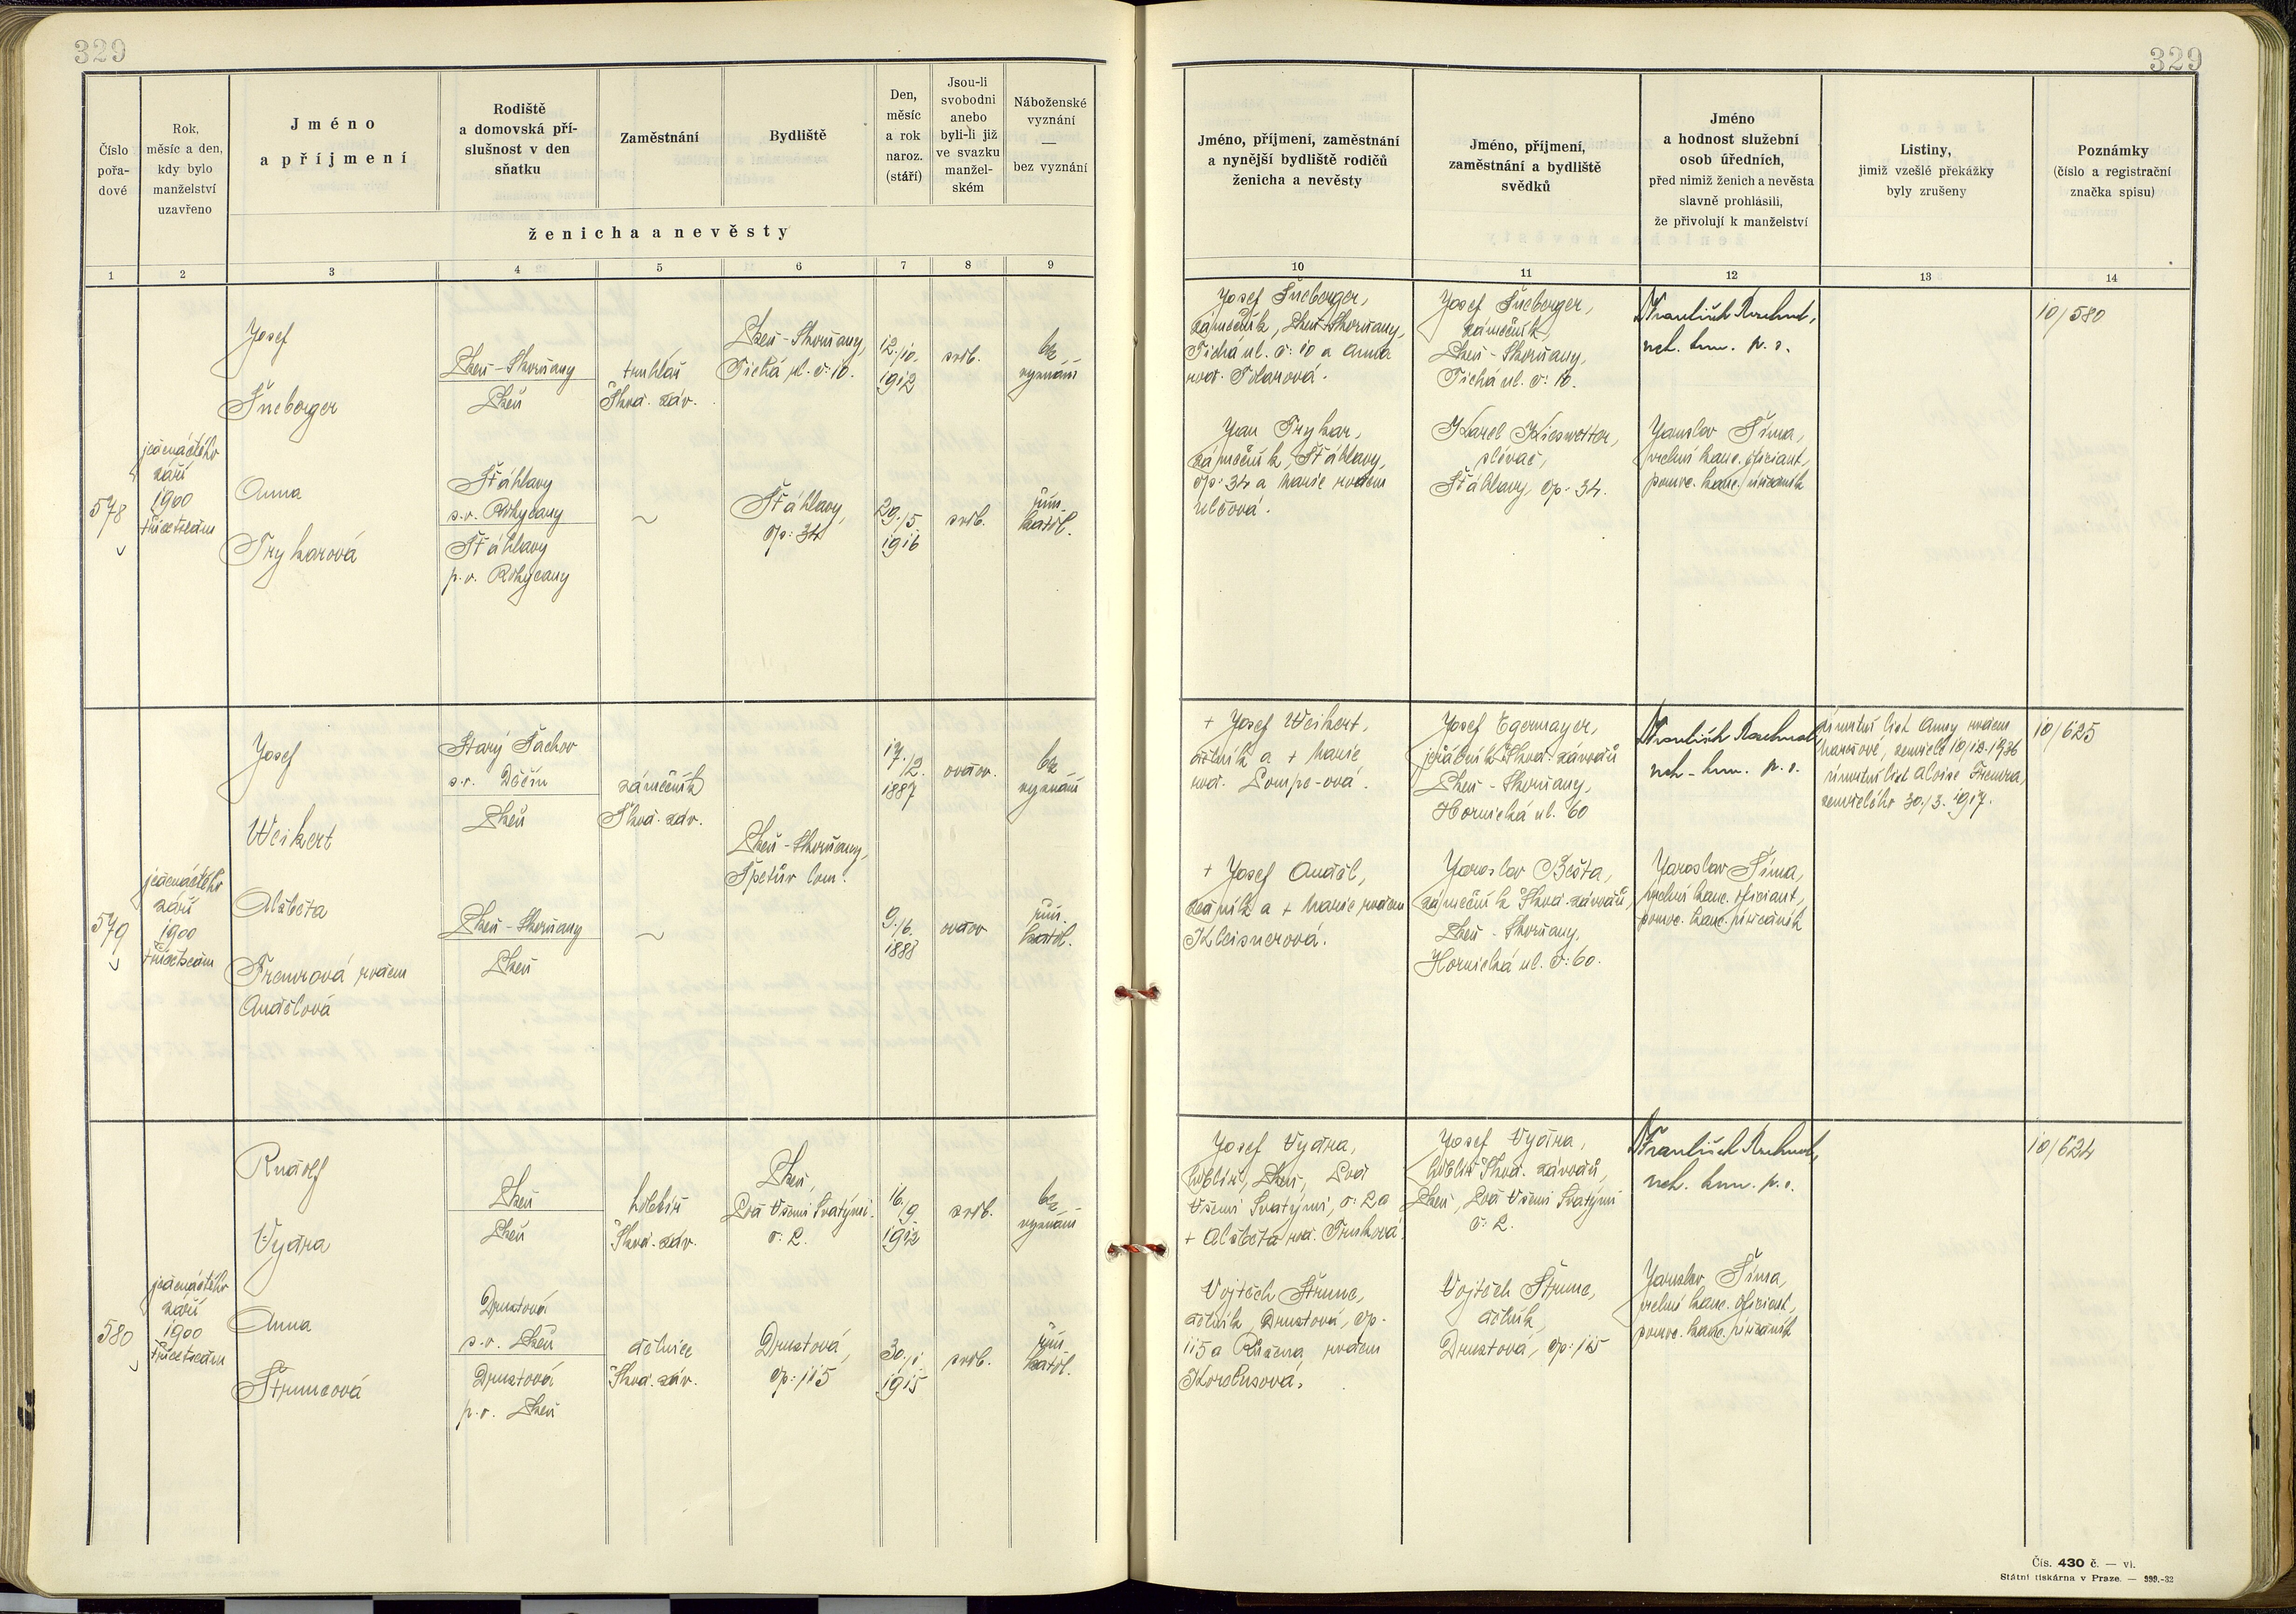 329
329
Číslo
pořa-
dové
Rok,
měsíc a den,
kdy bylo
manželství
uzavřeno
Jméno
a příjmení
Rodiště
a domovská pří-
slušnost v den
sňatku
Zaměstnání
Bydliště
Den,
měsíc
a rok
naroz.
(stáří)
Jsou-li
svobodni
anebo
byli-li již
ve svazku
manžel-
ském
Náboženské
vyznání
—
bez vyznání
ženicha a nevěsty
1 2 3 4 5 6 7 8 9
Jméno, příjmení, zaměstnání
a nynější bydliště rodičů
ženicha a nevěsty
Jméno, příjmení,
zaměstnání a bydliště
svědků
Jméno
a hodnost služební
osob úředních,
před nimiž ženich a nevěsta
slavně prohlásili,
že přivolují k manželství
Listiny,
jimiž vzešlé překážky
byly zrušeny
Poznámky
(číslo a registrační
značka spisu)
10 11 12 13 14
578
jedenáctého
září
1900
třicetsedm
Josef
Šneberger
Plzeň-Skvrňany
Plzeň
truhlář
Škod. záv.
Plzeň-Skvrňany,
Tichá ul. č: 10.
12./10.
1912
svob.
bez
vyznání
Anna
Tryharová
Šťáhlavy
s.o. Rokycany
Šťáhlavy
p.o. Rokycany
~
Šťáhlavy,
čp: 34
29./5
1916
svob.
řím.
katol.
Josef Šneberger,
zámečník, Plzeň-Skvrňany,
Tichá ul. č: 10 a Anna
rod.
Jan Tryhar,
zámečník, Šťáhlavy,
čp: 34 a Marie rodem
Ulčová.
Josef Šneberger,
zámečník,
Plzeň-Skvrňany,
Tichá ul. č: 10.
Karel Kieswetter,
slévač,
Šťáhlavy, čp: 34.
František
Jaroslav Šíma,
vrchní kanc. oficiant,
10/580
579
jedenáctého
září
1900
třicetsedm
Josef
Weikert
Starý Šachov
s.o. Děčín
Plzeň
zámečník
Škod. záv.
Plzeň-Skvrňany,
Špetův lom.
17./2.
1887
ovdov.
bez
vyznání
Alžběta
Tremlová rodem
Andělová
Plzeň-Skvrňany
Plzeň
~
9./6.
1883
ovdov
řím.
katol.
+ Josef Weikert,
dělník a + Marie
rod.
+ Josef Anděl,
a + Marie rodem
Kleisnerová.
Josef Egermayer,
jeřábník Škod. závodů
Plzeň-Skvrňany,
Hornická ul. 60
Jaroslav Bešta,
zámečník Škod. závodů,
Plzeň-Skvrňany,
Hornická ul. č: 60.
František
Jaroslav Šíma,
vrchní kanc. oficiant,
úmrtní list Anny rodem
zemřelé 10/12.1936
úmrtní list Aloise
zemřelého 30./3. 1917.
10/625
580
jedenáctého
září
1900
třicetsedm
Rudolf
Vydra
Plzeň
Plzeň
hoblíř
Škod. záv.
Plzeň,
Pod Všemi Svatými.
č: 2.
16./9
1912
svob.
bez
vyznání
Anna
Štruncová
Druztová
s.o. Plzeň
Druztová
p.o. Plzeň
dělnice
Škod. záv.
Druztová,
čp: 115
30./1
1915
svob.
řím.
katol.
Josef Vydra,
hoblíř, Plzeň, Pod
Všemi Svatými, č: 2 a
+ Alžběta rod. Trnková.
Vojtěch Štrunc,
dělník, Druztová, čp.
115 a Růžena, rodem
Korelusová.
Josef Vydra,
hoblíř Škod. závodů,
Plzeň, Pod Všemi Svatými
č: 2.
Vojtěch Štrunc,
dělník,
Druztová, čp: 115
František
Jaroslav Šíma,
vrchní kanc. oficiant,
10/624
Čís. 430 č. — vl.
Státní tiskárna v Praze. — 999.-32